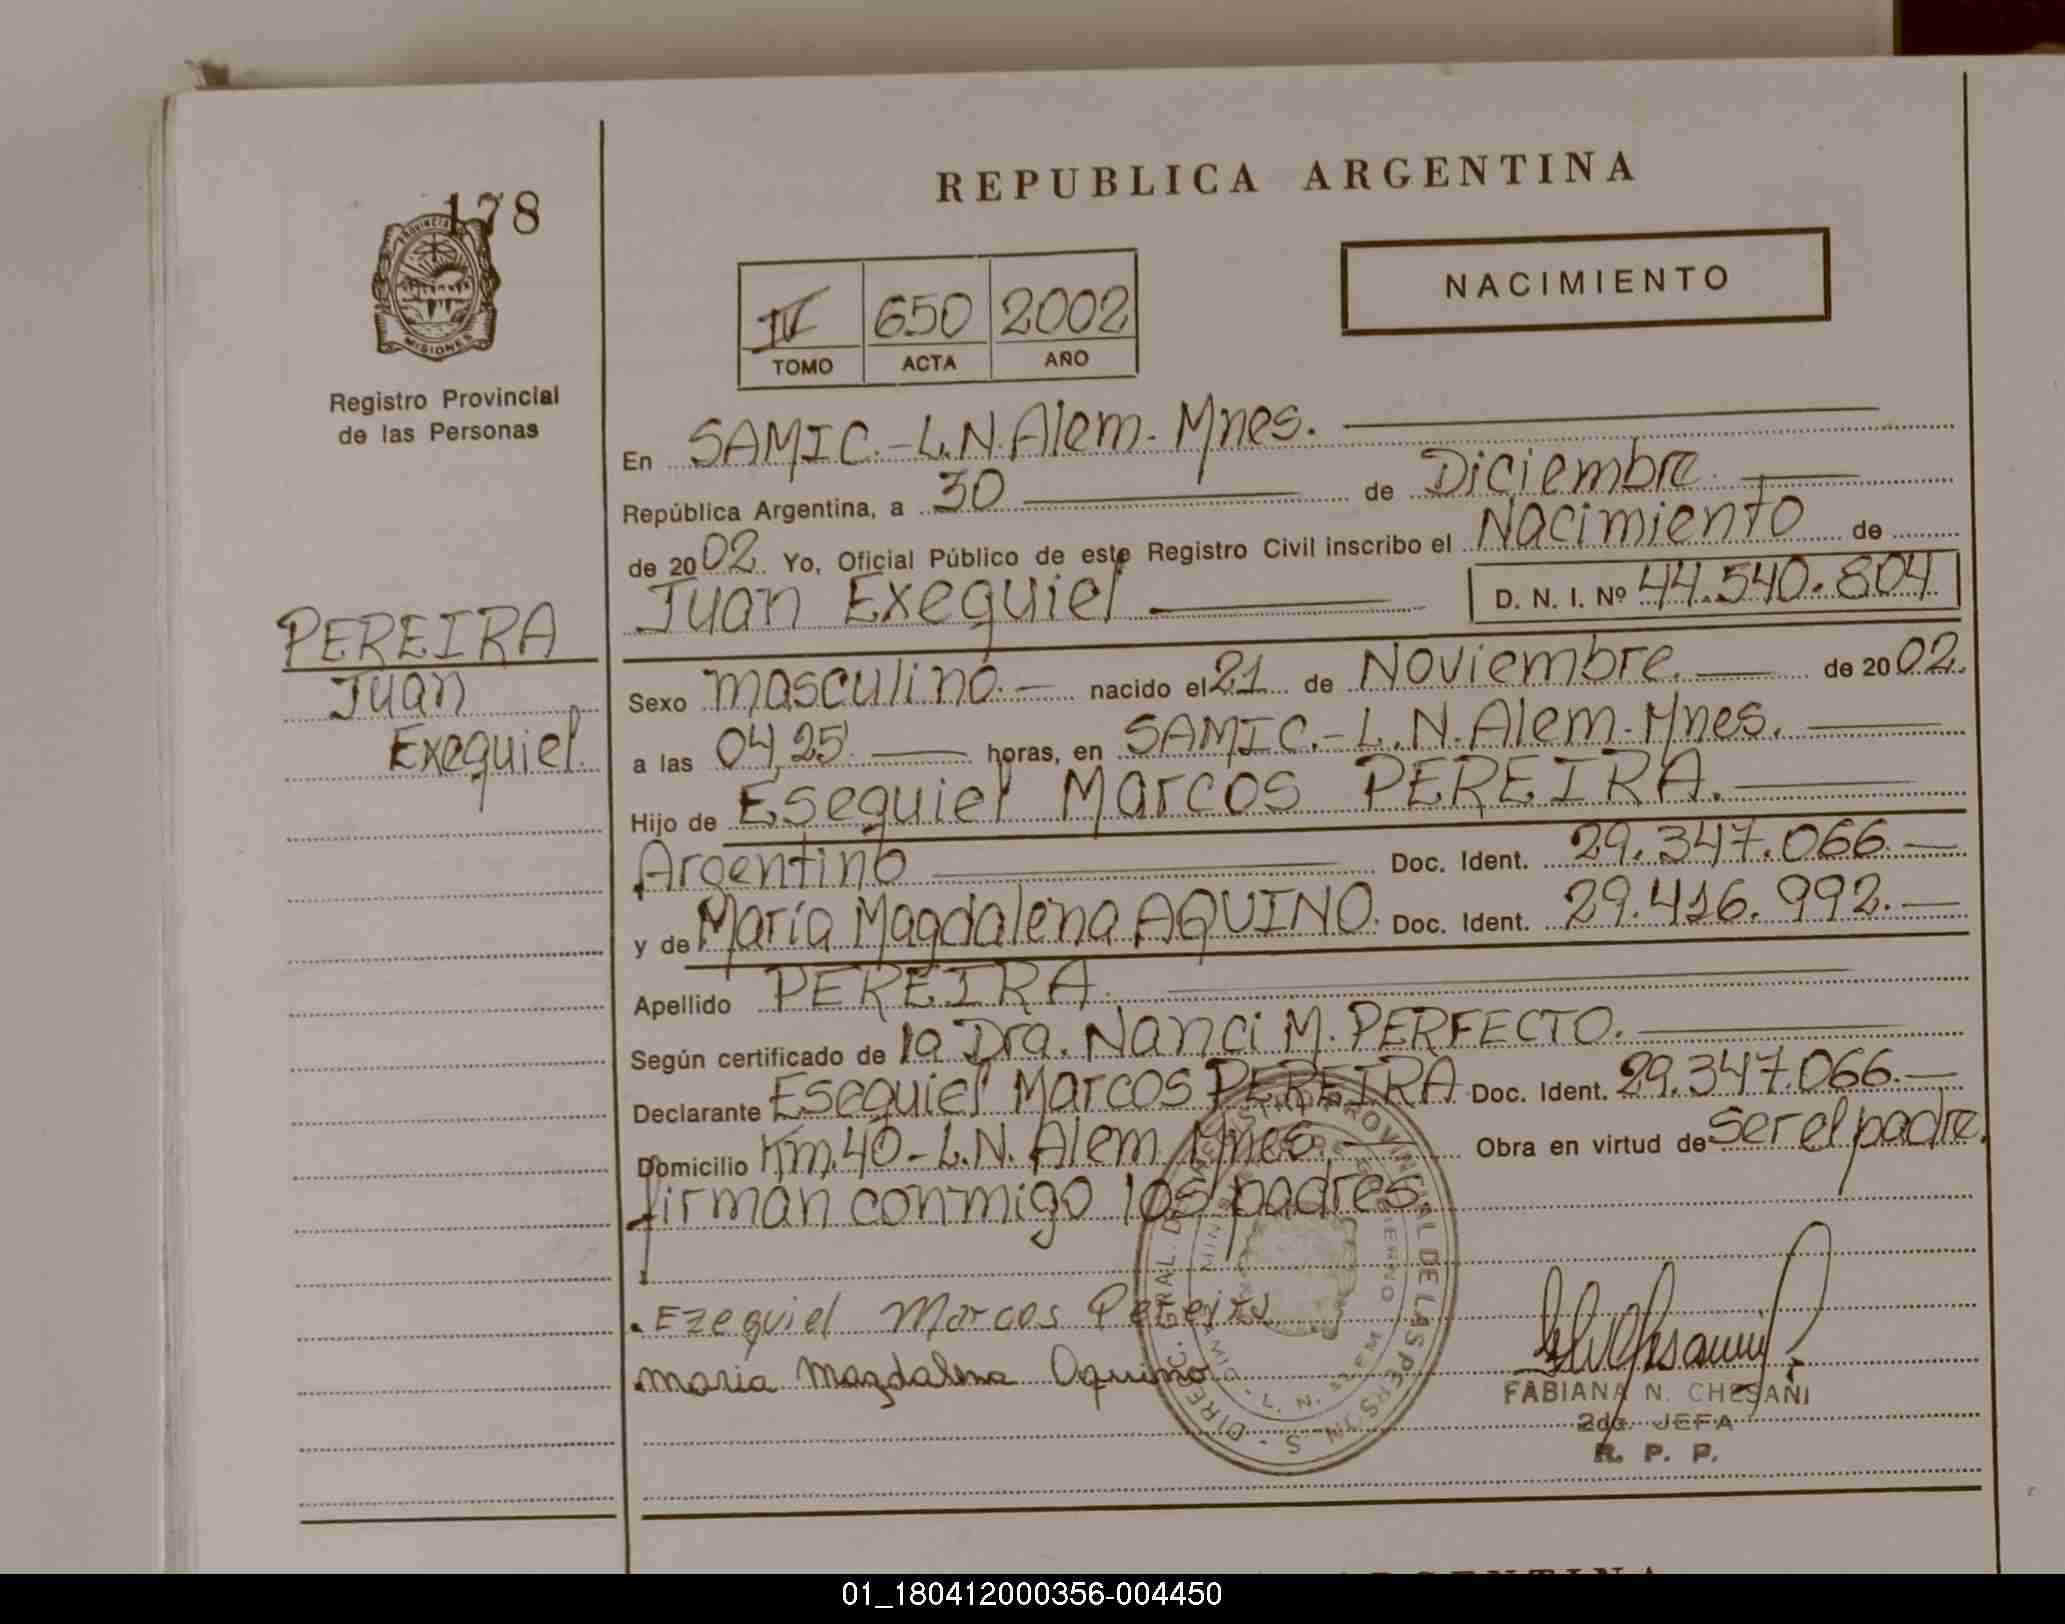 178
PROVINCIA
MISIONES
Registro Provincial
de las Personas
PEREIRA
Juan
Exequiel.
REPUBLICA ARGENTINA
NACIMIENTO
IV 650 2002
TOMO ACTA AÑO
En SAMIC.-L.N.Alem.-Mnes.
República Argentina, a 30 de Diciembre.
de 2002. Yo, Oficial Público de este Registro Civil inscribo el Nacimiento de
Juan Exequiel D. N. I. Nº 44.540.804
Sexo masculino.- nacido el 21 de Noviembre. de 2002.
a las 04,25' horas, en SAMIC.-L.N.Alem.-Mnes.
Hijo de Esequiel Marcos PEREIRA.
Argentino Doc. Ident. 29.347.066.-
y de María Magdalena AQUINO. Doc. Ident. 29.416.992.-
Apellido PEREIRA.
Según certificado de la Dra. Nanci M. PERFECTO.
Declarante Esequiel Marcos PEREIRA Doc. Ident. 29.347.066.-
Domicilio Km.40-L.N.Alem Mnes. Obra en virtud de ser el padre.
firman conmigo los padres
Ezequiel Marcos Pereira
maria Magdalena Aquino
FABIANA N. CHESANI
2da. JEFA
R. P. P.
01_180412000356-004450